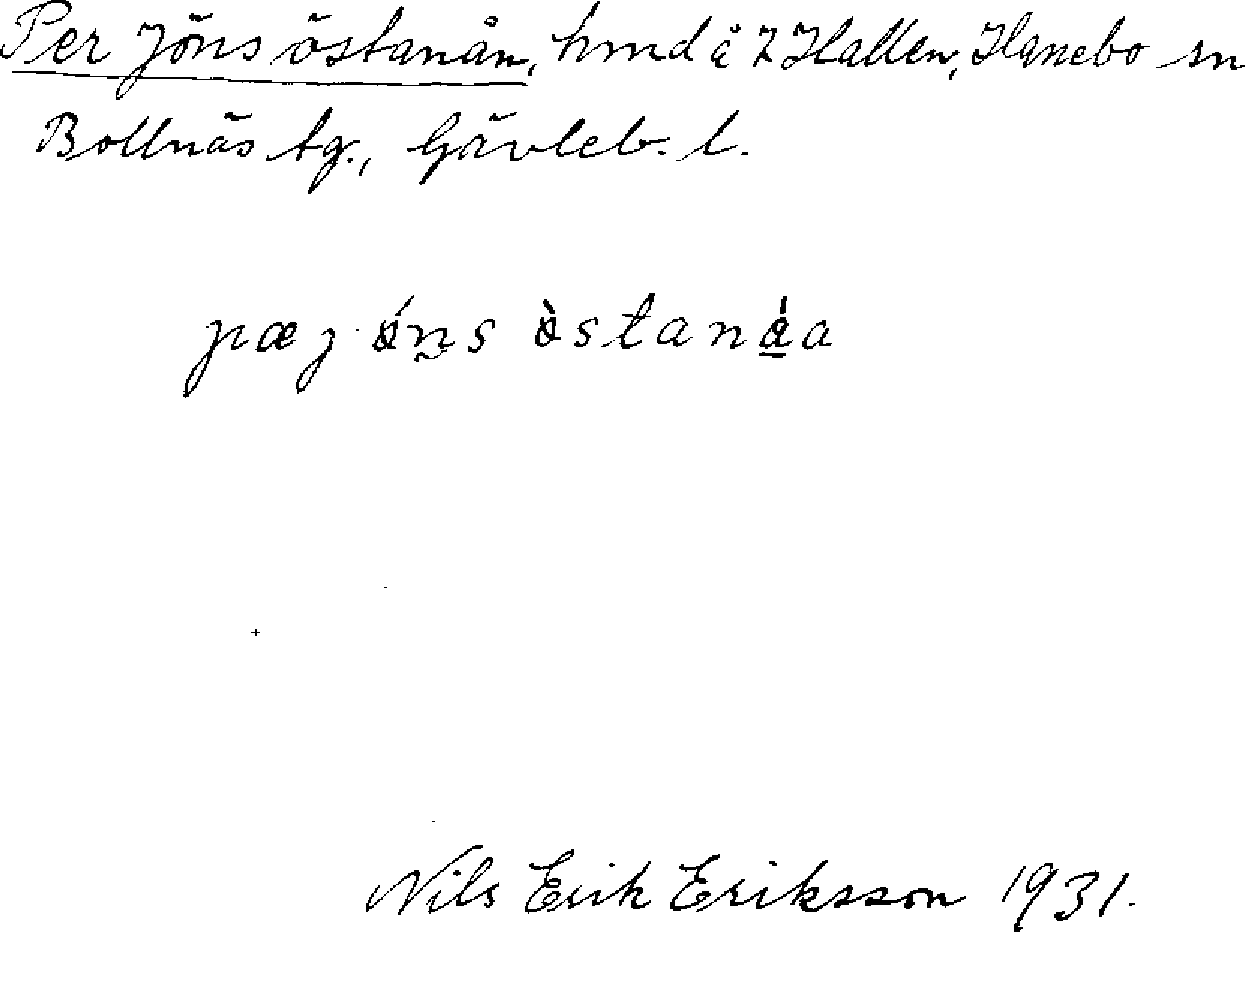 Per Jöns östanån, hmd å 7 Hallen, Hanebo sn
Bollnäs tg., Gävleb. l.
pæj ǿns östanåa
Nils Erik Eriksson 1931.